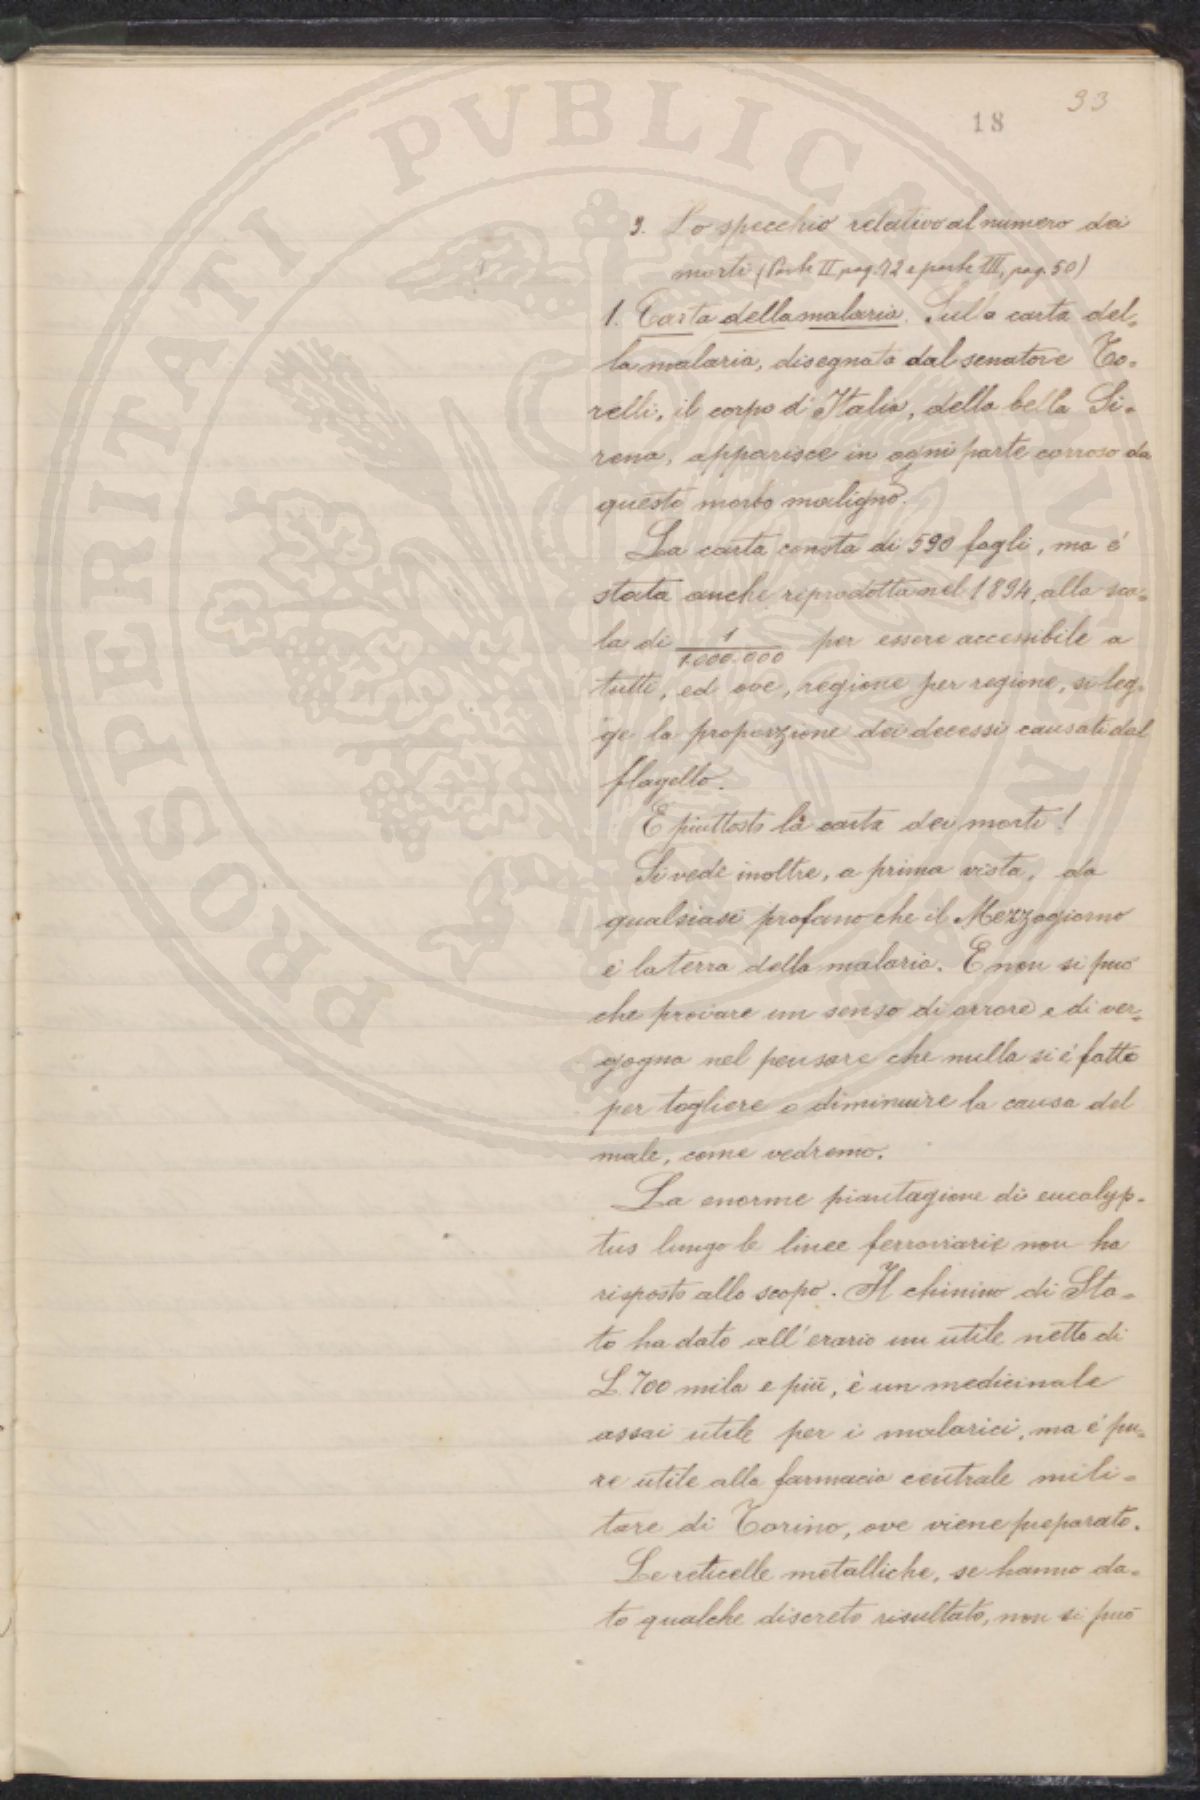 93
18
3. Lo specchio relativo al numero dei
morti (Parte II, pag. 72 e parte III, pag. 50)
1. Carta della malaria. Sulla carta del=
la malaria, disegnata dal senatore To=
relli, il corpo d'Italia, della bella Si=
rena, apparisce in ogni parte corroso da
questo morbo maligno.
La carta consta di 590 fogli, ma é
stata anche riprodotta nel 1894, alla sca=
la di 1/1.000.000 per essere accessibile a
tutti, ed ove, regione per regione, si leg=
ge la proporzione dei decessi causati dal
flagello.
E piuttosto la carta dei morti!
Si vede inoltre, a prima vista, da
qualsiasi profano che il Mezzogiorno
é la terra della malaria. E non si puó
che provare un senso di orrore e di ver=
gogna nel pensare che nulla si é fatto
per togliere o diminuire la causa del
male, come vedremo.
La enorme piantagione di eucalyp=
tus lungo le linee ferroviarie non ha
risposto allo scopo. Il chinino di Sta=
to ha dato all'erario un utile netto di
L. 700 mila e più, è un medicinale
assai utile per i malarici, ma é pu=
re utile alla farmacia centrale mili=
tare di Torino, ove viene preparato.
Le reticelle metalliche, se hanno da=
to qualche discreto risultato, non si può
PROSPERITATI PVBLICAE